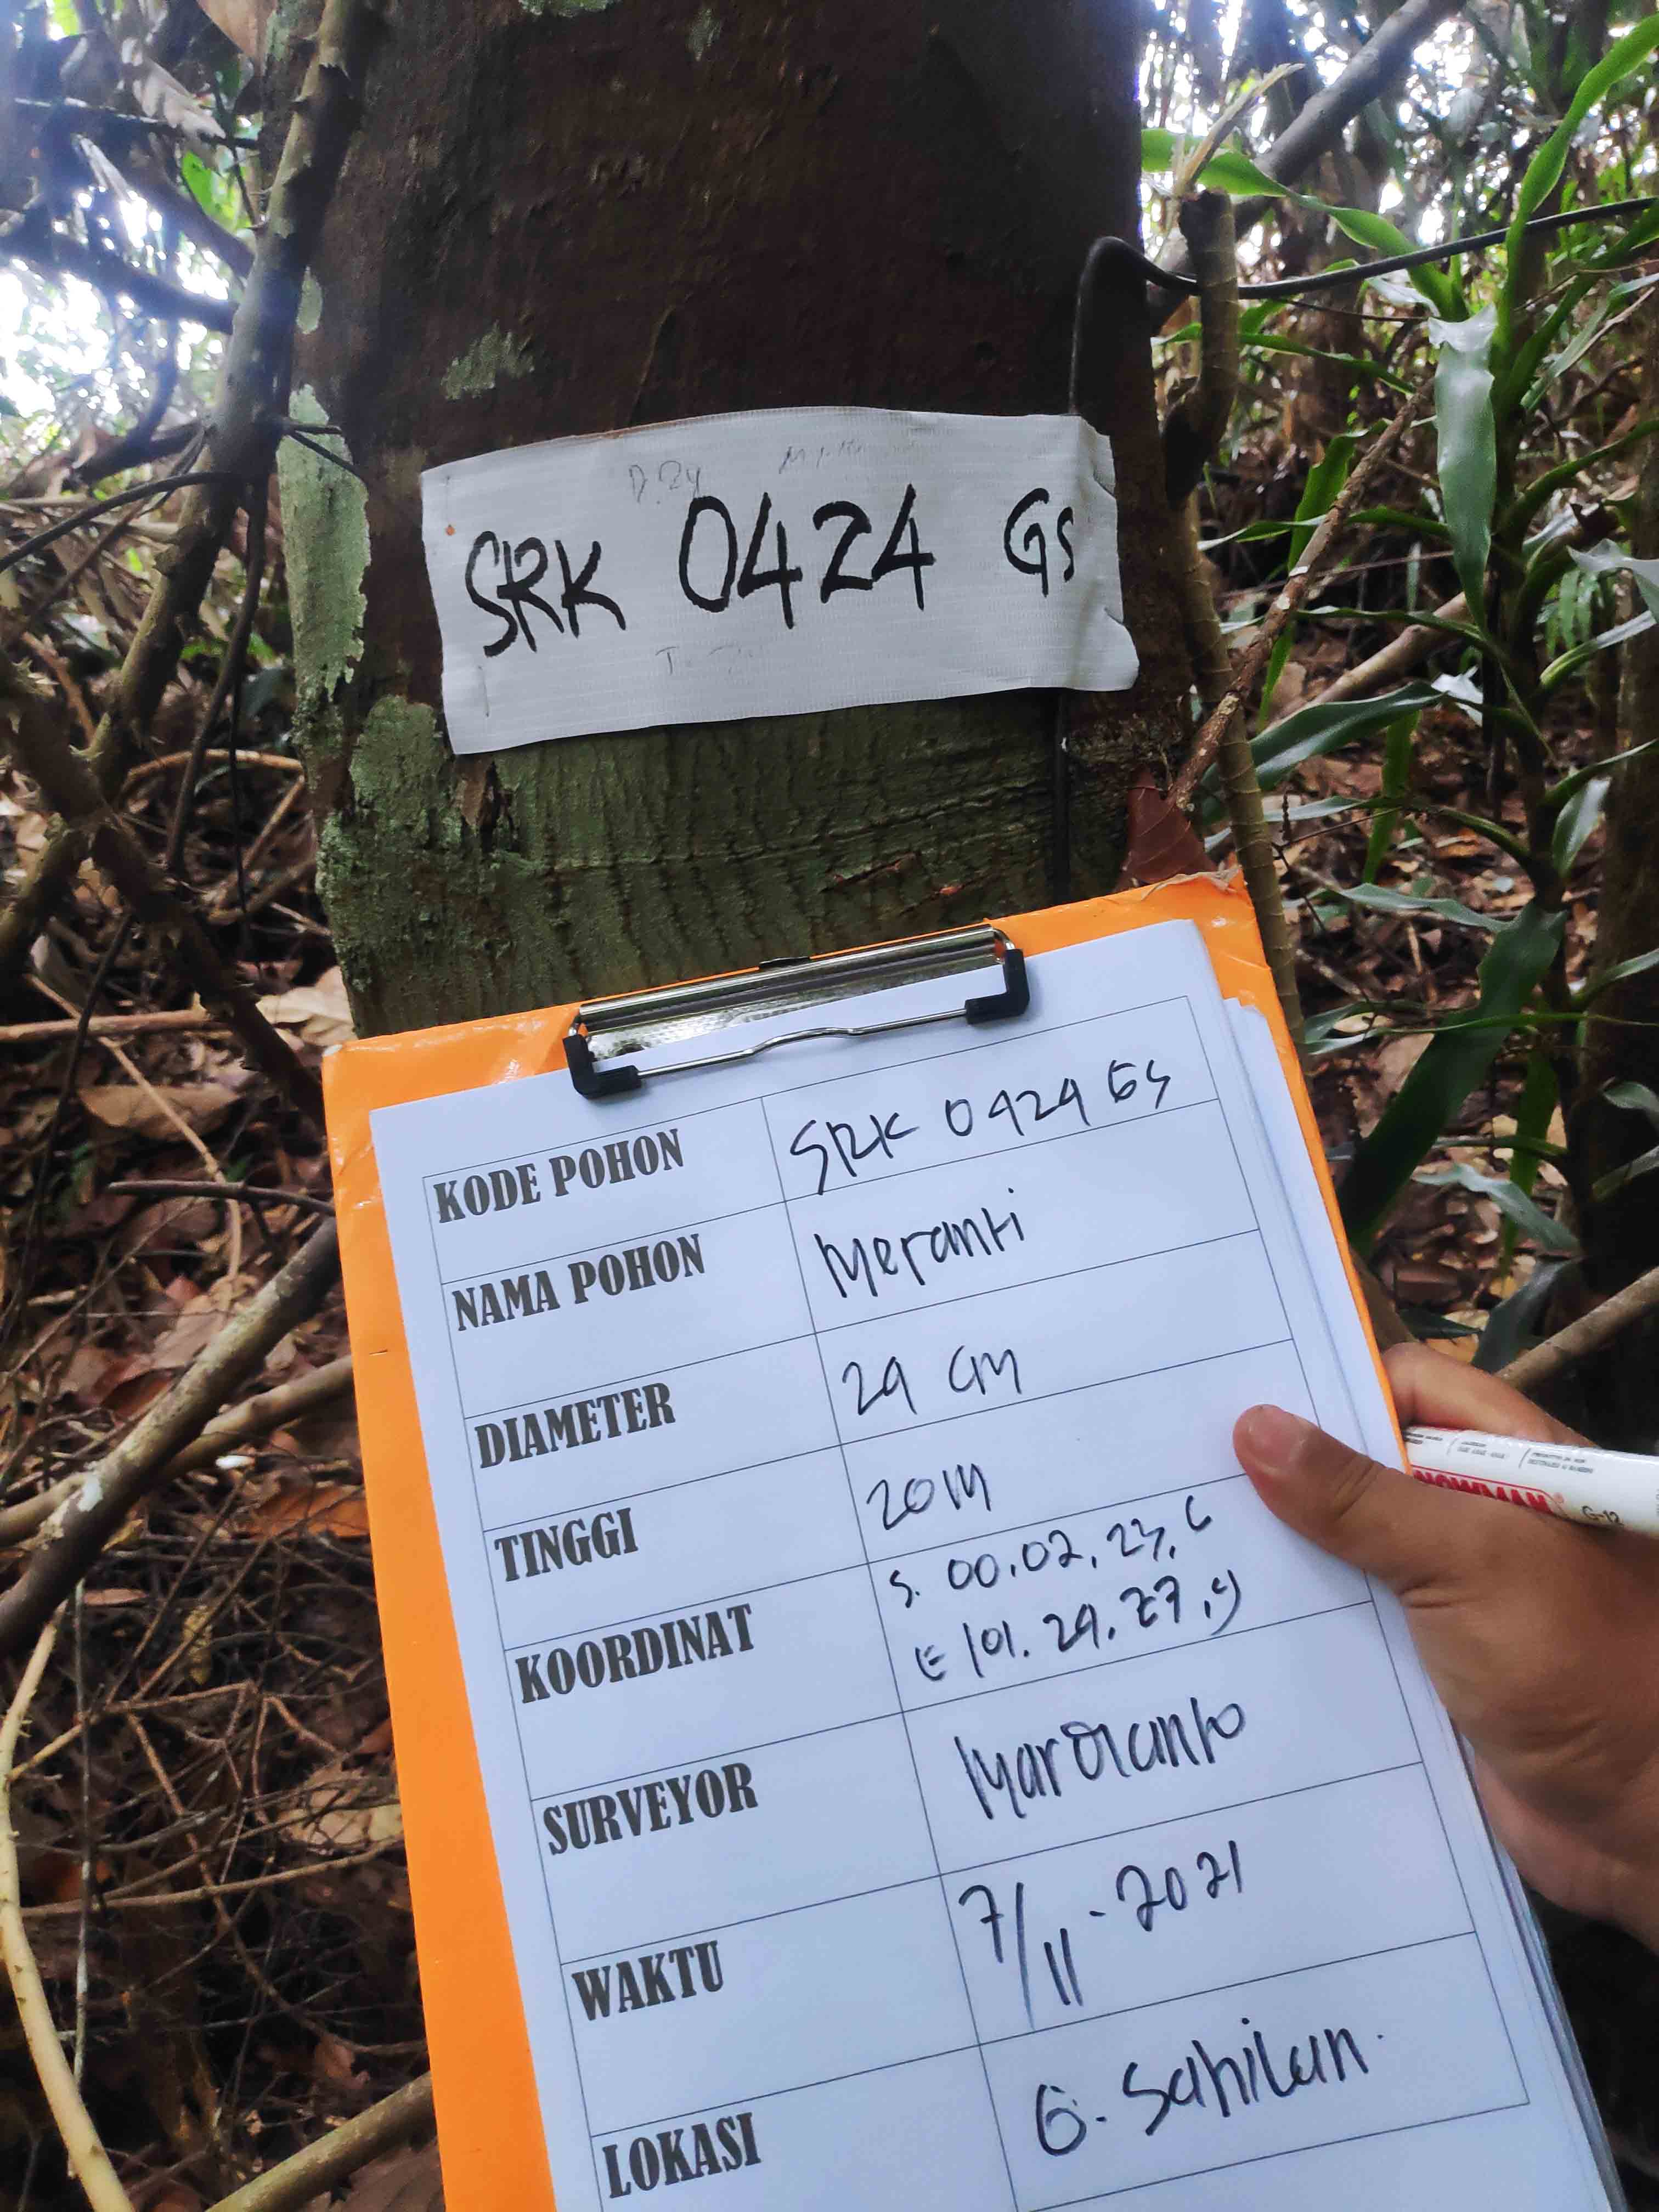 D. 24
SRK 0424 GS
KODE POHON SRK 0424 GS
NAMA POHON Meranti
DIAMETER 24 cm
TINGGI 20 M
KOORDINAT S. 00.02.23,6
E 101.24.27,9
SURVEYOR Mardianto
WAKTU 7/11-2021
LOKASI G. Sahilan.
SNOWMAN G-12